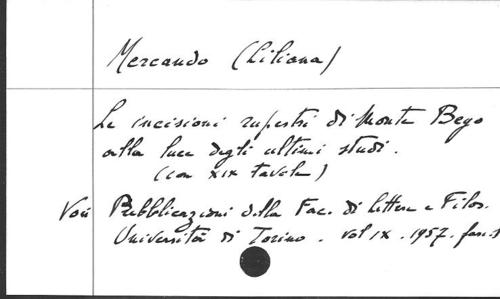 Mercando (Liliana)
Le incisioni rupestri di Monte Bego
alla luce degli ultimi studi.
(con XIX tavole)
Voir Pubblicazioni della Fac. di lettere e Filos.
Università di Torino. vol IX. 1957. fasc.